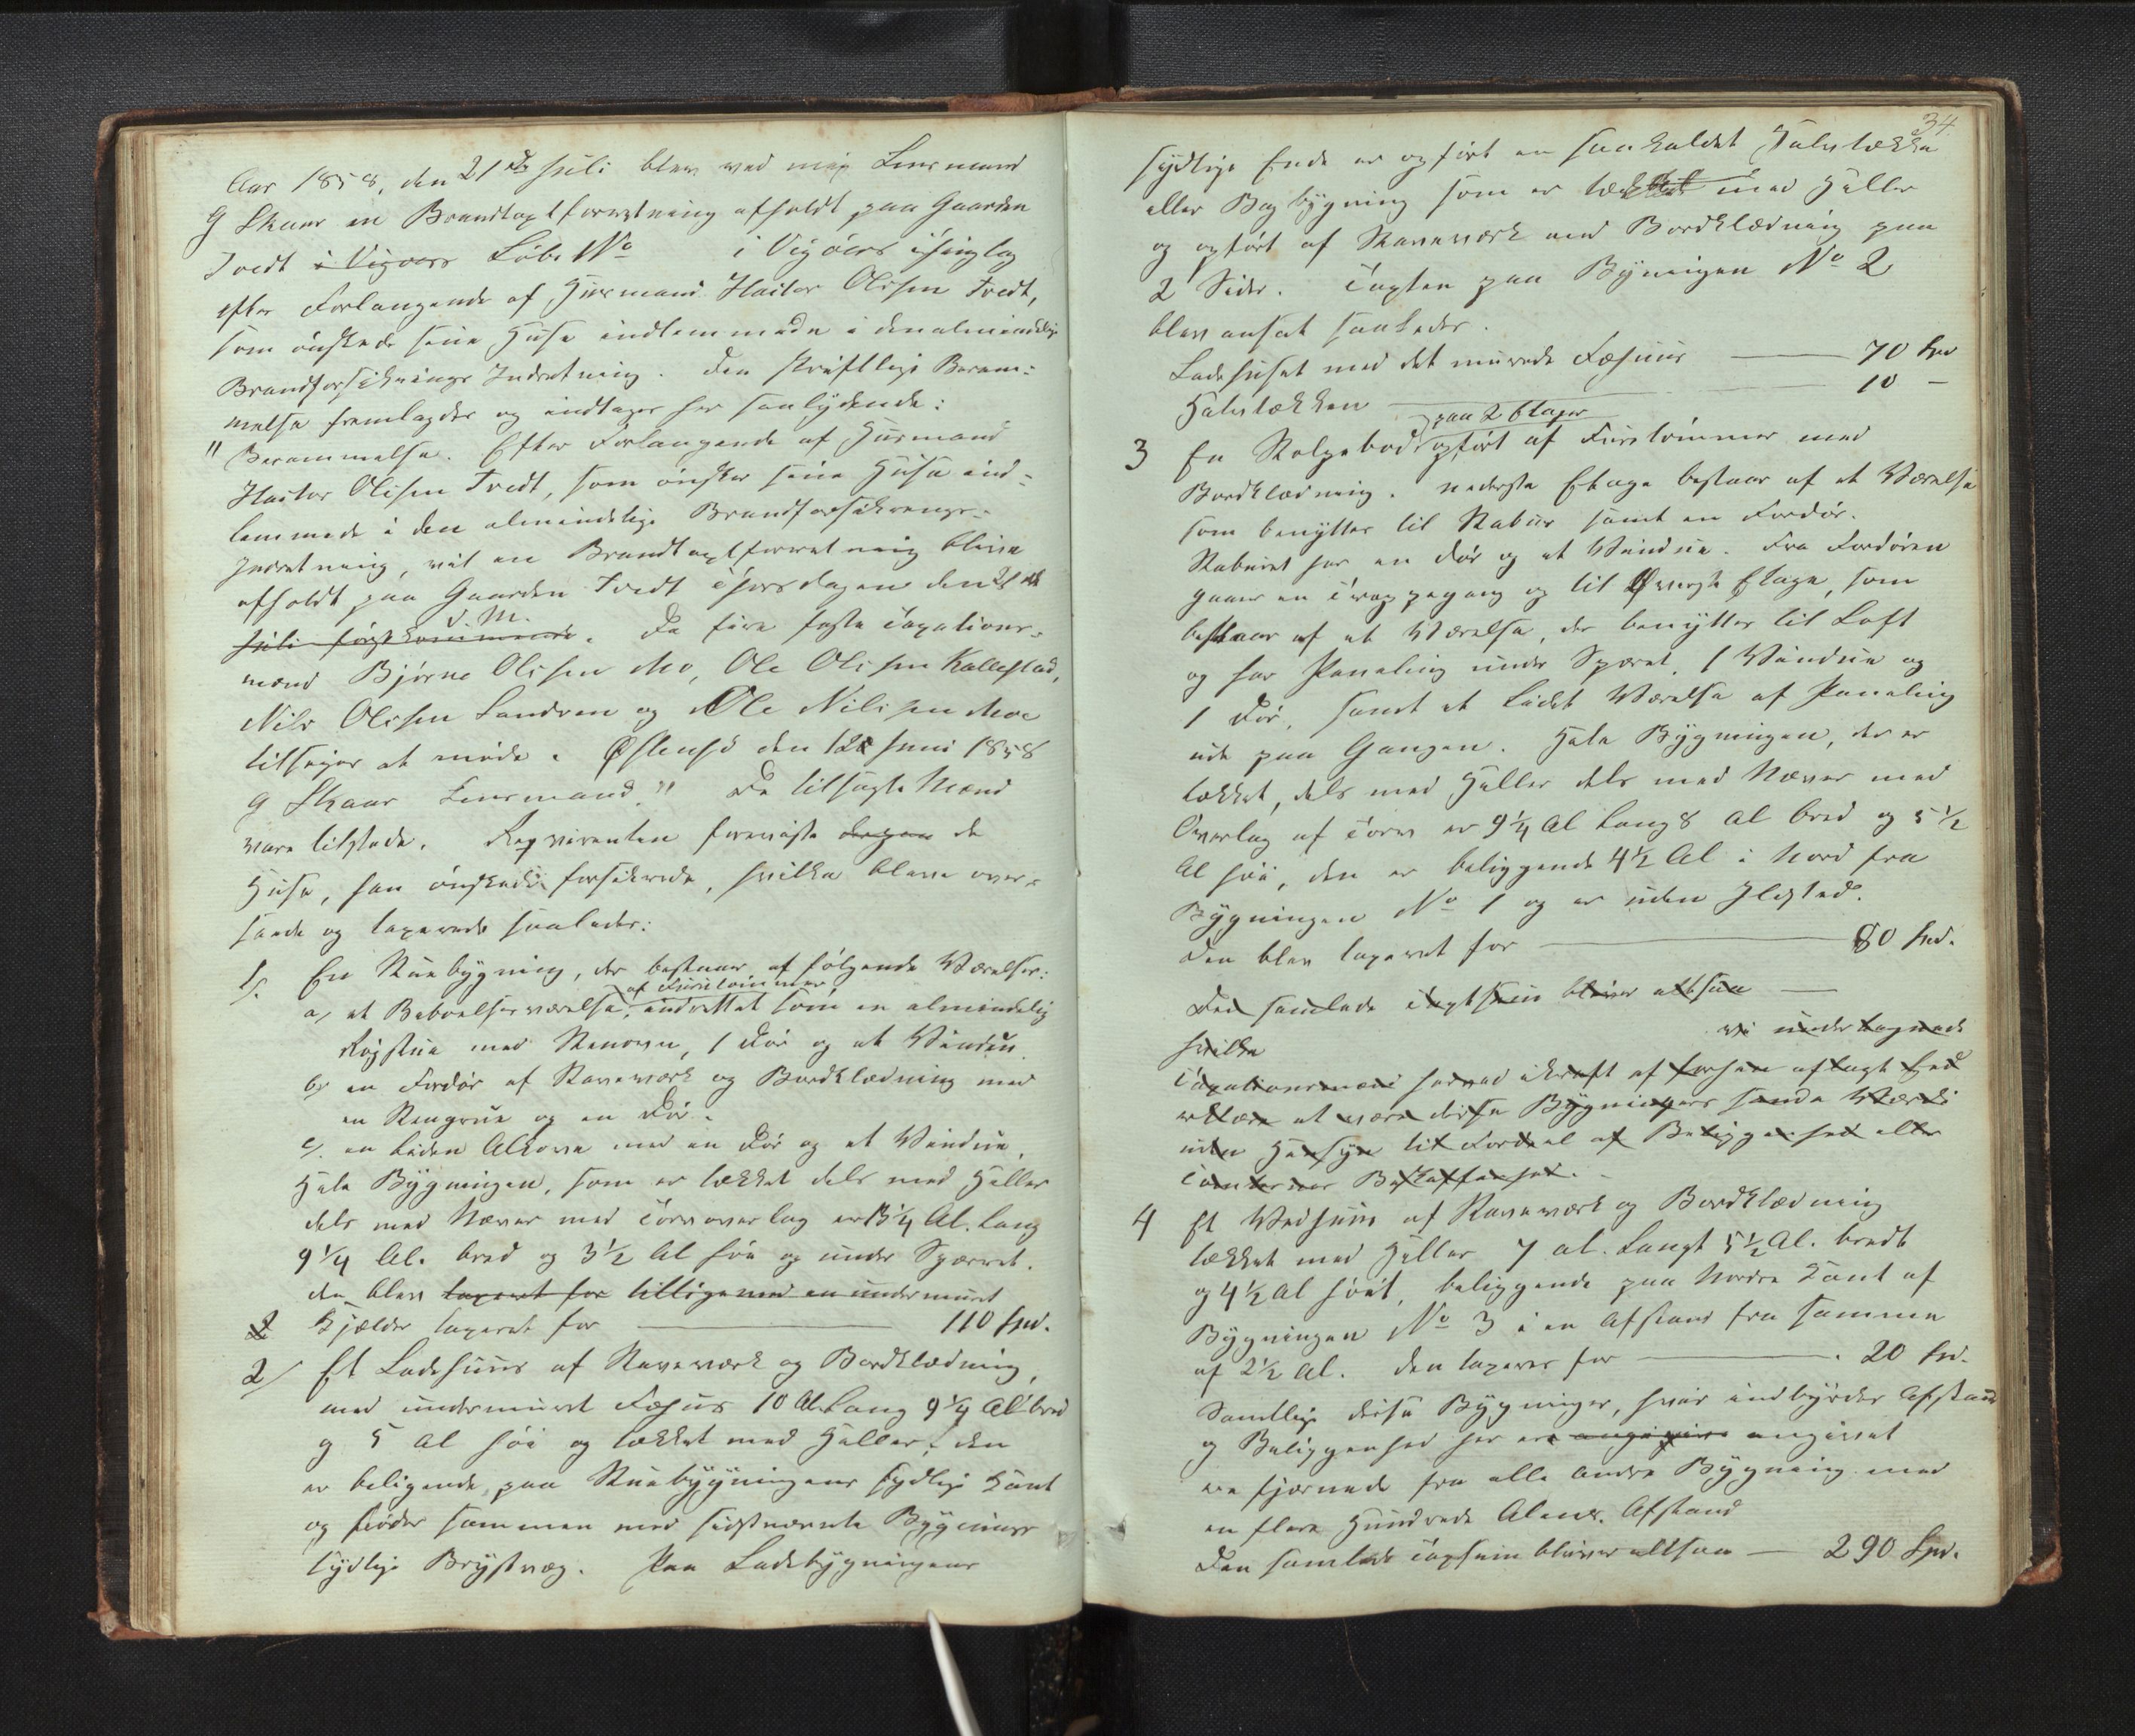 Aar 1858, den 21de Juli blev ved mig Lensmand
G Skaar en Brandtaxtforretning afholdt paa Gaarden
Tvedt i Vigøers Løbe No i Vigøers Thinglag
efter Forlangende af Huusmand Haktor Olsen Tvedt,
som ønskede sine Huse indlemmede i den almindelige
Brandforsikrings Indretning. Den skriftlige Beram-
melse fremlagdes og indtages her saalydende:
"Berammelse. Efter Forlangende af Huusmand
Haktor Olsen Tvedt, som ønsker sine Huse ind-
lemmede i den almindelige Brandforsikrings-
Indretning, vil en Brandtaxtforretning blive
afholdt paa Gaarden Tvedt Thorsdagen den 21de
d. M.
Juli førstkommende. De fire faste Taxations-
mænd Bjørne Olsen Mo, Ole Olsen Kallestad,
Nils Olsen Sandven og Ole Nilsen Moe
tilsiges at møde. Østensø den 12 Juni 1858
G Skaar Lensmand." De tilsagte Mænd
vare tilstede. Reqvirenten foreviste de
Huse, han ønskede forsikrede, hvilke bleve over-
saaede og taxerede saaledes:
1/. En Stuebygning, der bestaaer af følgende Værelser:
af Furutømmer
a/ et Beboelsesværelse, indrettet som en almindelig
Røgstue med Steenovn, 1 Dør og et Vindue
b/ en Fordør af Stavværk og Bordklædning med
en Steengrue og en Dør.
c/. en liden Alkove med en Dør og et Vindue,
Hele Bygningen, som er tækket dels med Heller
dels med Næver med Torvoverlag er 13 1/4 Al. lang
9 1/4 Al. bred og 3 1/2 Al høi op under Sperret.
den blev taxeret for tilligemed en undermuret
2 Kjælder taxeret for 110 Spd.
2/ Et Ladehuus af Stavværk og Bordklædning,
med undermuret Fæhus 10 Al lang 9 1/4 Al bred
og 5 Al høi og tækket med Heller, den
er beliggende paa Stuebygningens sydlige Kant
og støder sammen med sidstnævnte Bygnings
sydlige Brystvæg. Paa Ladebygningens
34.
sydlige Ende er opført en saakaldet Halvtække
eller Bagbygning som er tækket med Heller
og opført af Stavværk med Bordklædning paa
2 Sider. Taxten paa Bygningen No 2
blev ansat saaledes.
Ladehuset med det murede Fæhuus 70 Spd
Halvtækken 10 -
paa 2 Etager
3 En Stolpebod opført af Furetømmer med
Bordklædning. nederste Etage bestaar af et Værelse
som benyttes til Stabuur samt en Fordør.
Staburet har en Dør og et Vindue. Fra Fordøren
gaaer en Trappegang op til Øverste Etage, som
bestaar af et Værelse, der benyttes til Loft
og har Paneling under Sperret, 1 Vindue og
1 Dør, samt et lidet Værelse af Paneling
ude paa Gangen. Hele Bygningen, der er
tækket, dels med Heller dels med Næver med
Overlag af Torv er 9 1/4 Al lang 8 Al bred og 5 1/2
Al høi, den er beliggende 4 1/2 Al i Nord fra
Bygningen No 1 og er uden Ildsted.
Den blev taxeret for 80 Spd.
Den samlede Taxtsum bliver altsaa
hvilke vi undertegnede
Taxationsmænd herved ikraft af forhen aflagt Eed
erklære at være disse Bygningers sande Værdi
uden Hensyn til Fordeel af Beliggenhed eller
Tomternes Beskaffenhed.
4 Et Vedhuus af Stavværk og Bordklædning
tækket med Heller 7 al. langt 5 1/2 Al. bredt
og 4 1/2 Al høit, beliggende paa Nordre Kant af
Bygningen No 3 i en Afstand fra samme
af 2 1/2 Al. Den taxeres for 20 Spd.
Samtlige disse Bygninger, hvis indbyrdes Afstand
og Beliggenhed her er angivne angivet
ere fjernede fra alle andre Bygning med
en flere Hundrede Alens Afstand
Den samlede Taxtsum bliver altsaa — 290 Spd.